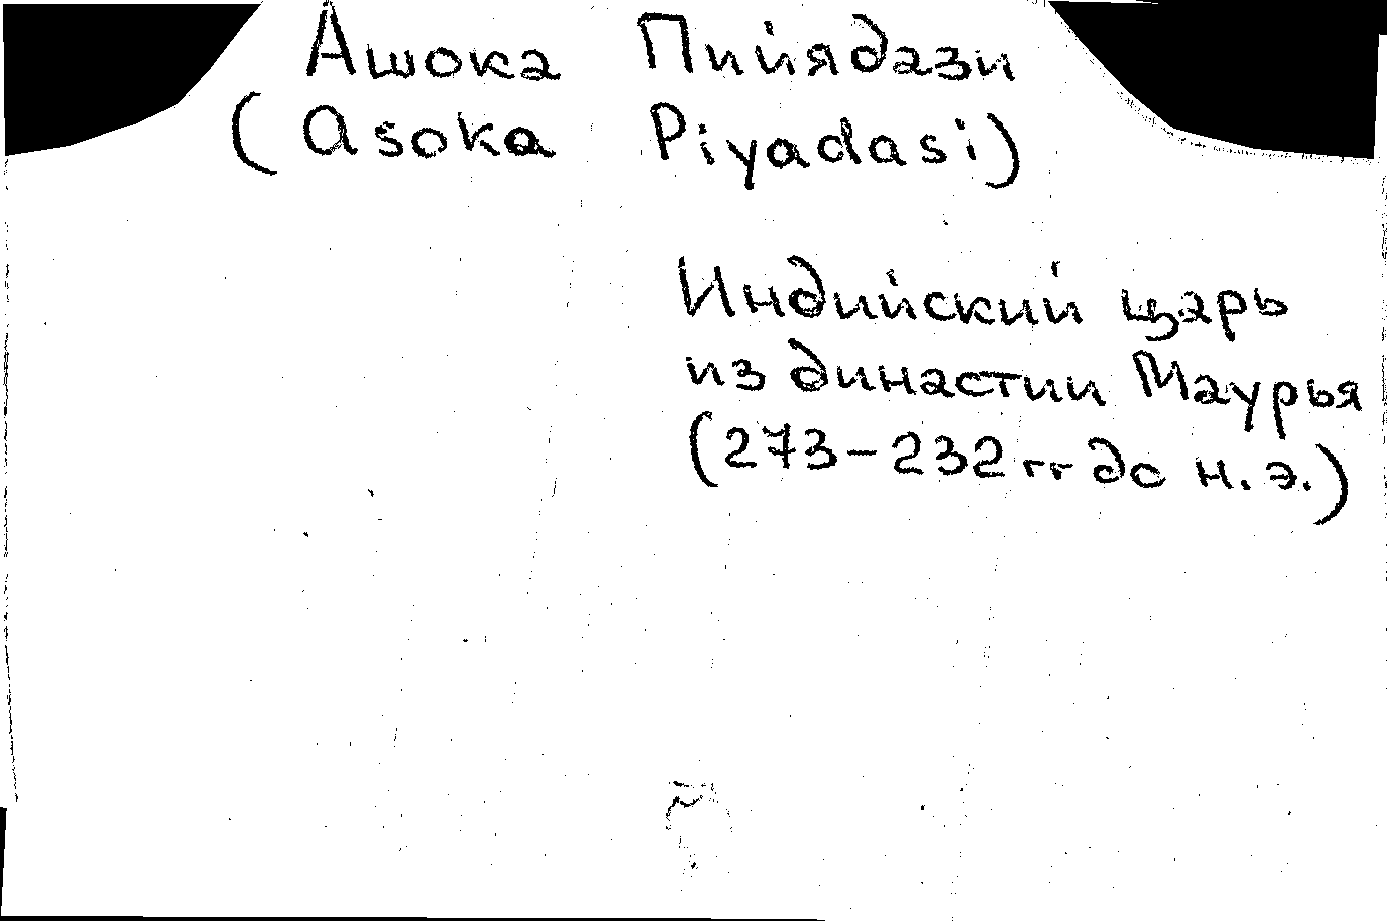 Ашока Пийядази
(Asoka Piyadasi)
Индийский царь
из династии Маурья
(273-232 гг до н.э.)